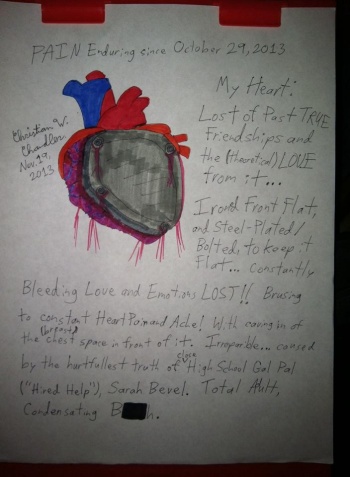 PAIN Enduring since October 29, 2013
My Heart:
Christian W.
Chandler
Nov. 19,
2013
Lost of Past TRUE
Friendships and
the (theoretical) LOVE
from it...
Irond Front Flat,
and Steel-Plated/
Bolted, to keep it
Flat... Constantly
Bleeding Love and Emotions LOST!! Brusing
to constant Heart Pain and Ache! With caving in of
the chest space in front of it. Irreparble... caused
by the hurtfullest truth of close High School Gal Pal
("Hired Help"), Sarah Bevel. Total Adult,
Condensating B h.